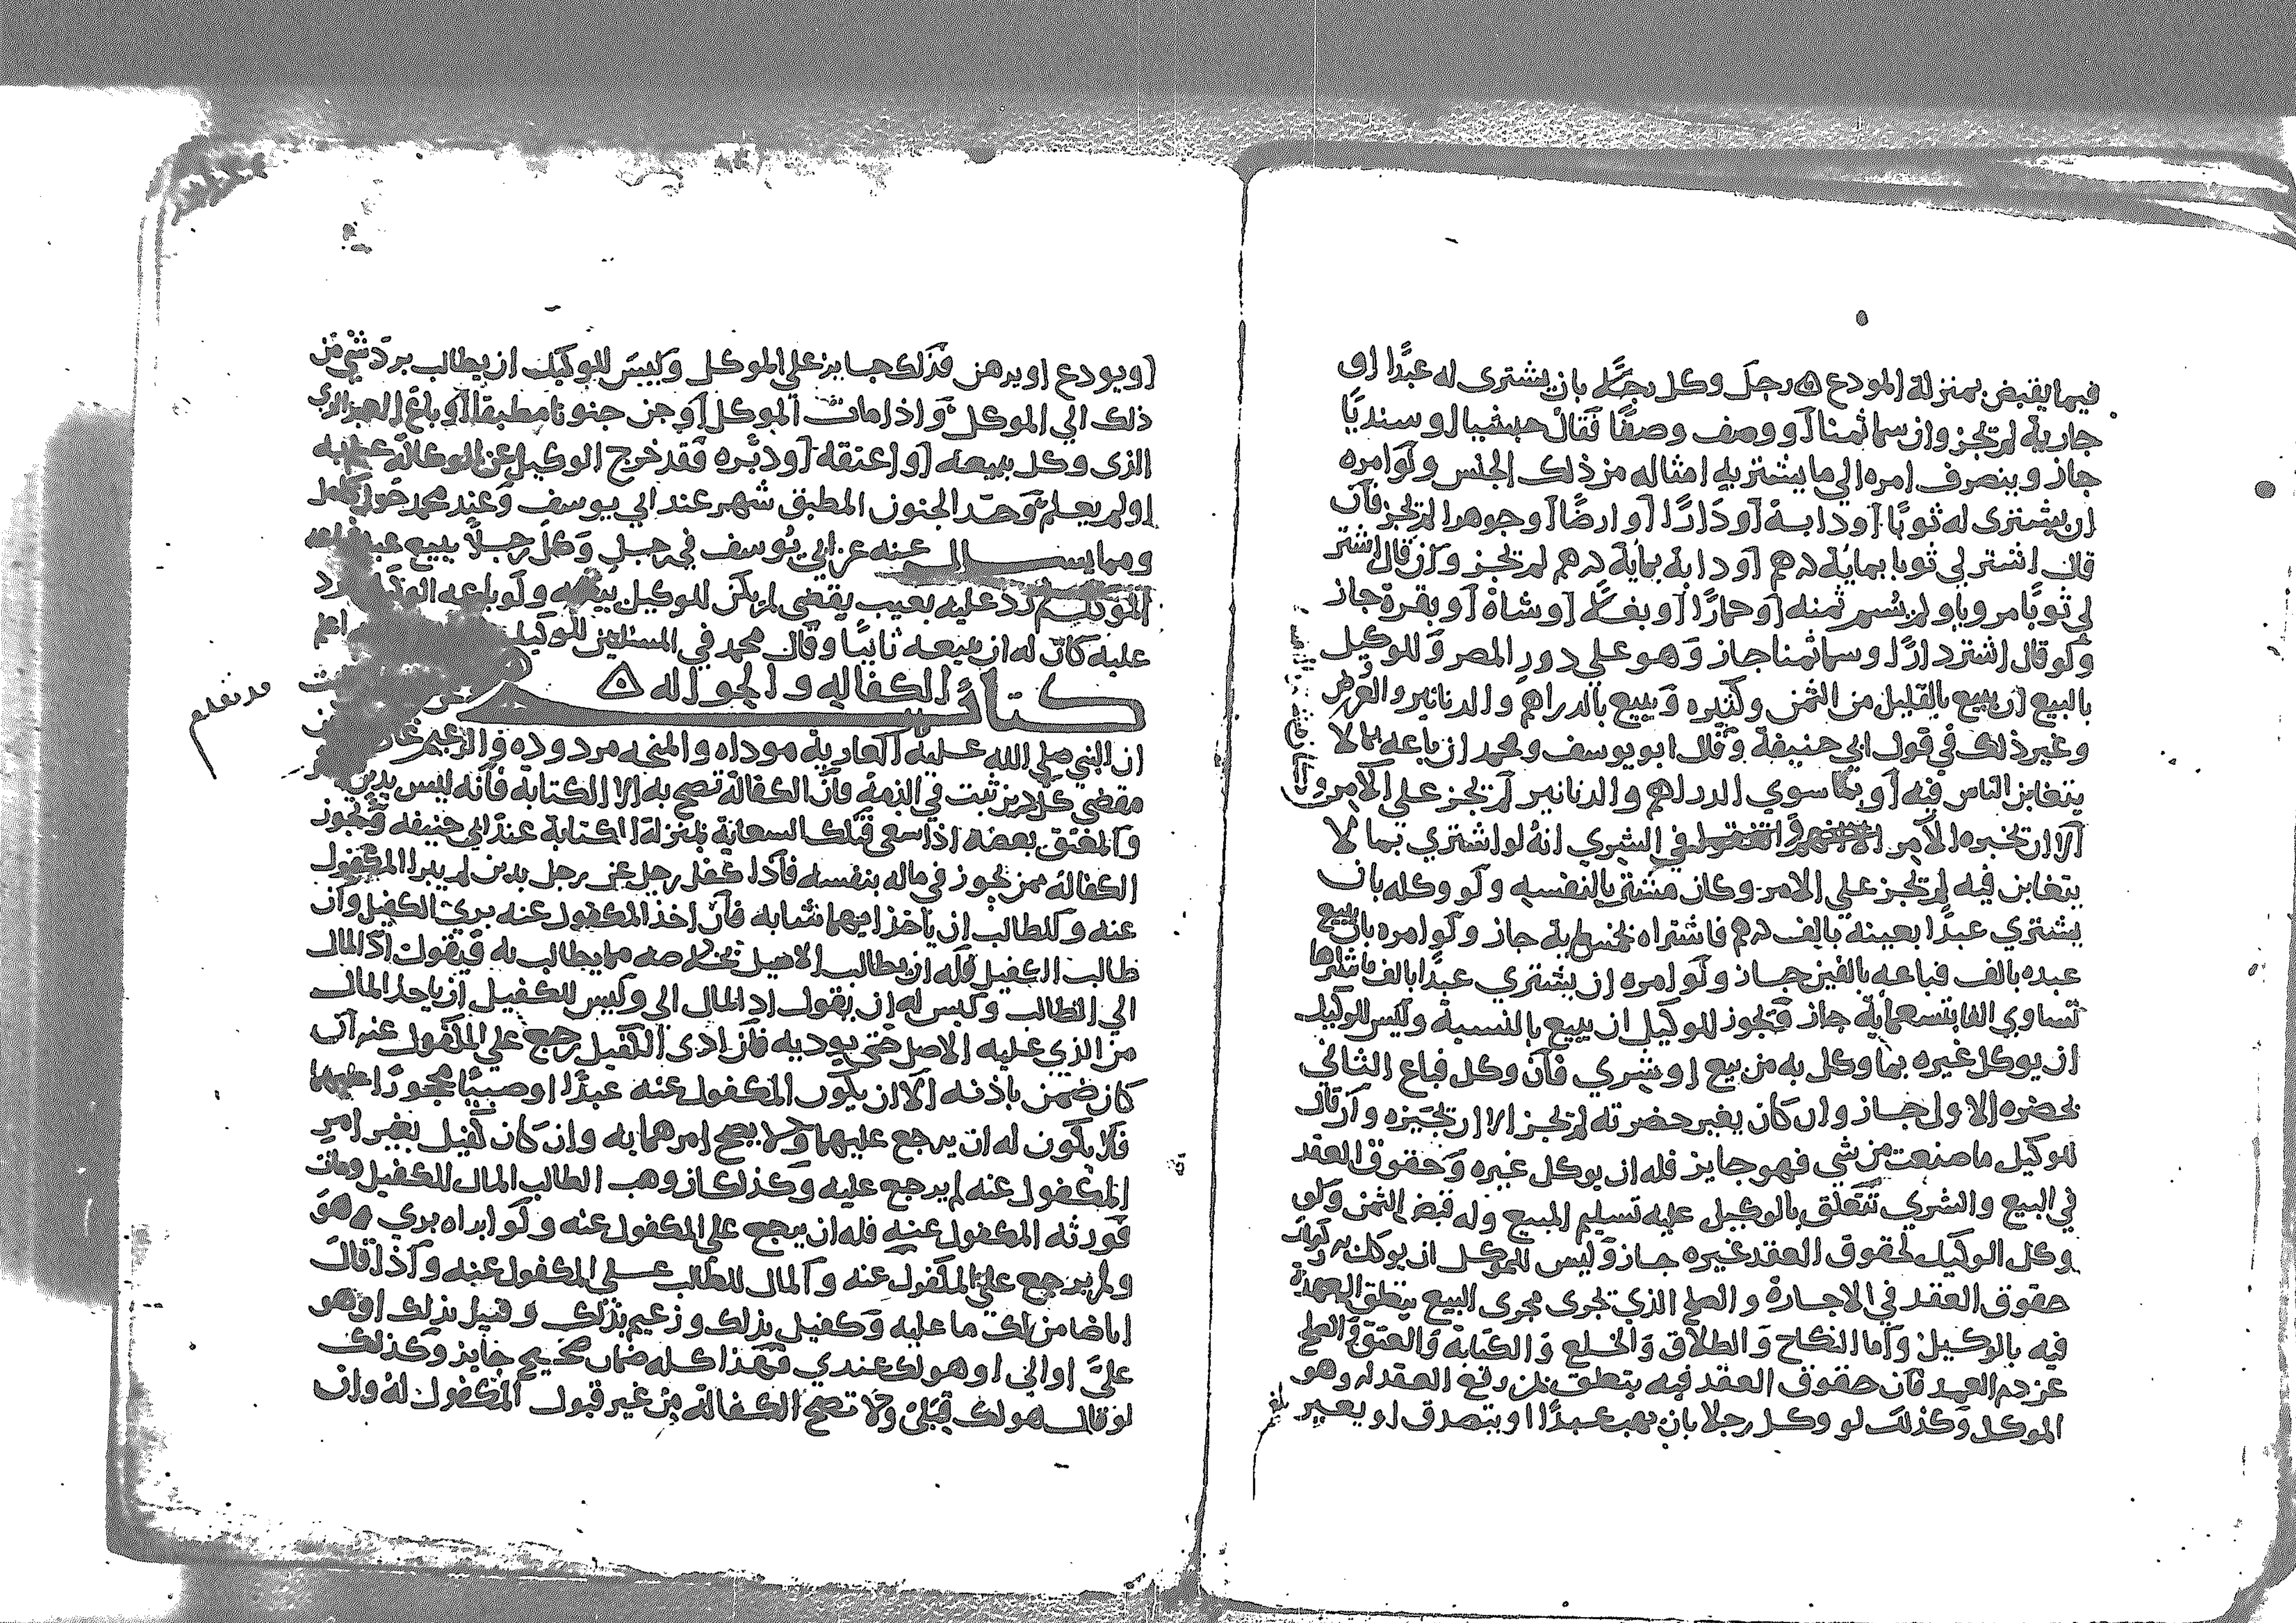 فيما يقبض بمنزلة المودع ۵ رجل وكل رجلا بان يشترى له عبدًا او
جارية لم تجز وان سما ثمنا او وصف وصفًا فقال حبشيا او سنديًا
جاز وينصرف امره الي ما يشتريه امثاله من ذلك الجنس ولو امره
ان يشترى له ثوبًا او دابة او دارًا او ارضًا او جوهرا لم تجز فان
قال اشتر لي ثوبا بماية درهم او دابة بماية درهم لم تجز وان قال اشتر
لي ثوبًا مرويا ولم يسم ثمنه او حمارًا او بغلا او شاة او بقرة جاز
ولو قال اشتر دارًا وسما ثمنا جاز وهو علي دور المصر وللوكيل
بالبيع ان يبيع بالقليل من الثمن وكثيره ويبيع بالدراهم والدنانير والعرض
وغير ذلك في قول ابي حنيفة وقال ابو يوسف ومحمد ان باعه بما لا
يتغابن الناس فيه او بما سوي الدراهم والدنانير لم تجز علي الامر
الا ان تخيره الامر في الشري انه لو اشتري بما لا
يتغابن فيه لم تجز علي الامر وكان مشتريا لنفسه ولو وكله بان
يشتري عبدًا بعينه بالف درهم فاشتراه بخمس ماية جاز ولو امره بان يبيع
عبده بالف فباعه بالفين جاز ولو امره ان يشتري عبدًا بالف فاشتراها
تساوي الفا بتسعماية جاز فتجوز للوكيل ان يبيع بالنسية وليس للوكيل
ان يوكل غيره بما وكل به من بيع او شري فان وكل فباع الثاني
بحضره الاول جاز وان كان بغير حضرته لم تجز الا ان تجيزه وان قال
للوكيل ما صنعت من شي فهو جايز فله ان يوكل غيره وحقوق العقد
في البيع والشري تتعلق بالوكيل عليه تسليم المبيع وله قبض الثمن ولو
وكل الوكيل بحقوق العقد غيره جاز وليس للموكل ان يوكل به
حقوق العقد في الاجارة والصلح الذي تجرى مجرى البيع يتعلق العهدة
فيه بالوكيل واما النكاح والطلاق والخلع والكتابة والعتق والصلح
عن دم العمد فان حقوق العقد فيه يتعلق بمن وقع العقد له وهو
الموكل وكذلك لو وكل رجلا بان يهب عبدًا او يتصدق او يعير
بلغ
او يودع او يرهن فذلك جايز علي الموكل وليس للوكيل ان يطالب برد شي من
ذلك الي الموكل واذا مات الموكل او جن جنونا مطبقا او باع العبد الذي
الذى وكل ببيعه او اعتقه او دبره فقد خرج الوكيل من الوكالة علم به
او لم يعلم وحد الجنون المطبق شهر عند ابي يوسف وعند محمد حول كامل
ومما يسال عنه عن ابي يوسف في رجل وكل رجلاً ببيع عبد
رد عليه بعيب بقضي لم يكن للوكيل بيعه ولو باعه الوكيل
عليه كان له ان يبيعه ثانيًا وقال محمد في المسلتين للوكيل
كتاب الكفاله والحواله ۵
ان النبي صلي الله عليه العارية موداه والمنحه مردوده والزعيم غارم
مقضي كل دين ثبت في الذمة فان الكفالة تصح به الا الكتابة فانه ليس بدين
والمعتق بعضه اذا سعى فتلك السعاية بمنزلة الكتابة عند ابي حنيفه وتجوز
الكفالة ممن تجوز في ماله بنفسه فاذا كفل رجل عن رجل بدين لم يبرا المكفول
عنه وللطالب ان ياخذ ايهما شا به فان اخذ المكفول عنه بري الكفيل وان
طالب الكفيل فله ان يطالب الاصيل بخلاصه مما يطالب به فيقول اد المال
الي الطالب وليس له ان يقول اد المال الي وليس للكفيل ان ياخذ المال
من الذي عليه الاصل حتى يوديه فان ادى الكفيل رجع علي المكفول عنه ان
كان ضمن باذنه الا ان يكون المكفول عنه عبدًا او صبيًا محجورًا عليهما
فلا يكون له ان يرجع عليهما ولا يصح امرهما به وان كان كفيل بغير امر
المكفول عنه لم يرجع عليه وكذلك ان وهب الطالب المال للكفيل ومات
فورثه المكفول عنه فله ان يرجع علي المكفول عنه ولو ابراه بري هو
ولم يرجع علي المكفول عنه والمال للطالب علي المكفول عنه واذا قال
انا ضامن لك ما عليه وكفيل بذلك وزعيم بذلك وقبيل بذلك او هو
عليَّ او الي او هو لك عندي فهذا كله ضمان صحيح جايز وكذلك
لو قال هو لك قبلي ولا تصح الكفالة من غير قبول المكفول له وان